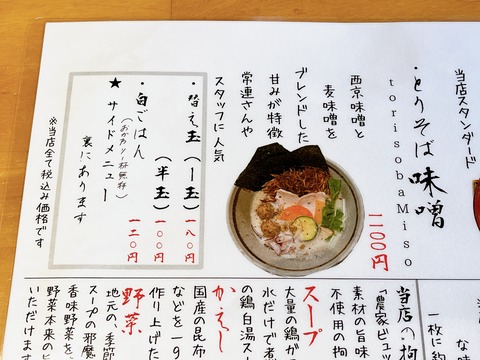 当店スタンダード
・とりそば味噌
torisobaMiso
一一〇〇円
西京味噌と
麦味噌を
ブレンドした
甘みが特徴
常連さんや
スタッフに人気
・替え玉(一玉)一八〇円
(半玉)一〇〇円
・白ごはん 一二〇円
(おかわり一杯無料)
★サイドメニュー
裏にあります
※当店全て税込み価格です
当店の拘
「農家ビ
素材の旨味
不使用の拘
スープ
大量の鶏が
水だけで煮
の鶏白湯ス
かえし
国産の昆布
などを一9
作り上げた
野菜
地元の、季節
スープの邪魔
香味野菜を、
野菜本来の
いただけます